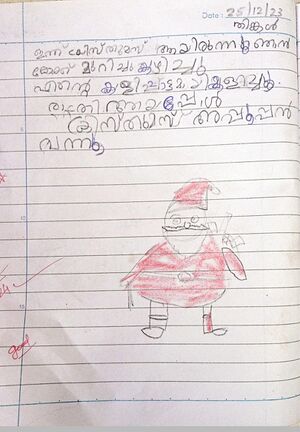 Date: 25/12/23
തിങ്കൾ
ഇന്ന് ക്രിസ്തുമസ് ആയിരുന്നു ഞാൻ
കേക്ക് മുറിച്ചു കഴിച്ചു
എന്റെ കളിപ്പാട്ടമായി കളിച്ചു.
രാത്രി ആയപ്പോൾ
ക്രിസ്തുമസ് അപ്പൂപ്പൻ
വന്നു
good